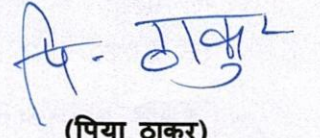 पि. ठाकुर
(पिया ठाकुर)